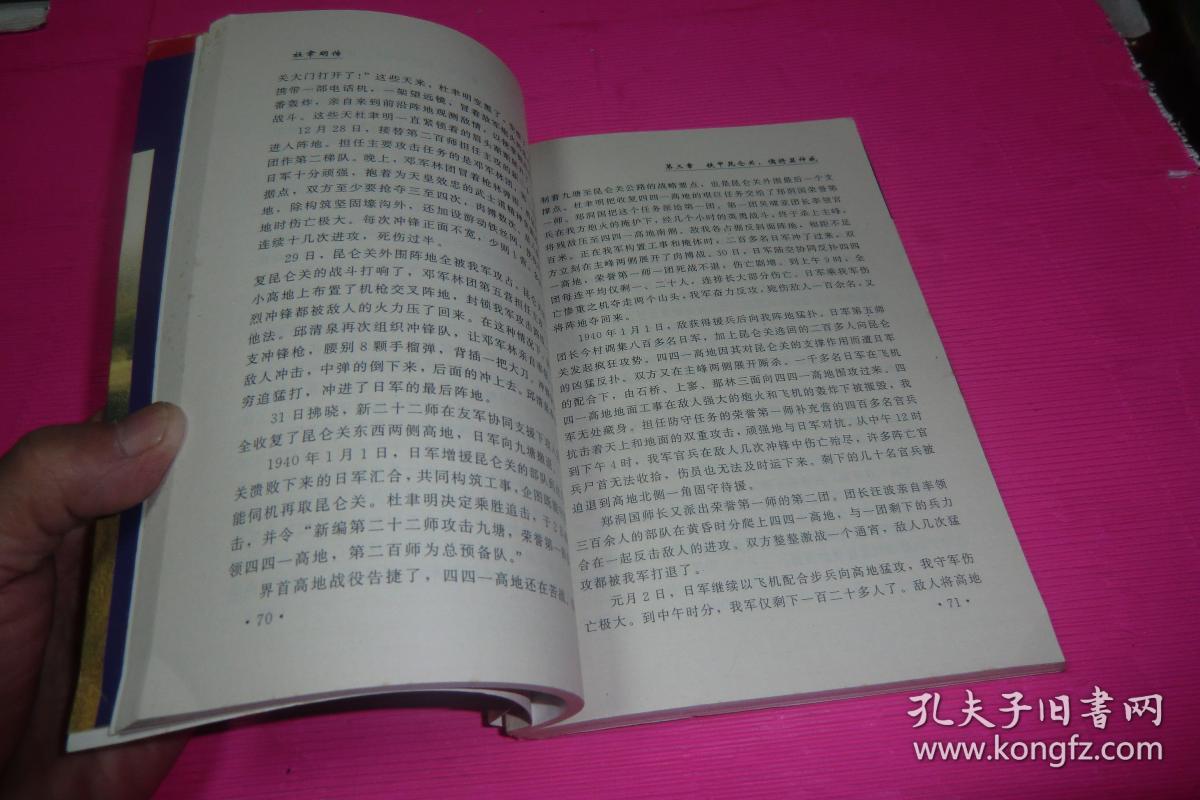 杜聿明传
关大门打开了!”这些天来,杜聿明变黑了,
携带一部电话机,一架望远镜,冒着敌军
番轰炸,亲自来到前沿阵地观测敌情,以便
战斗。这些天杜聿明一直紧锁着的眉头渐渐
12月28日,接替第二百师担任主攻的
进入阵地。担任主要攻击任务的是邓军林团,
团作第二梯队。晚上,邓军林团冒着枪林弹雨
日军十分顽强,抱着为天皇效忠的武士道精神
据点,双方至少要抢夺三至四次,肉搏数次,
地,除构筑坚固壕沟外,还加设游动铁丝网,
地时伤亡极大。每次冲锋正面不宽,少则1营,
连续十几次进攻,死伤过半。
29日,昆仑关外围阵地全被我军攻占,昆仑
复昆仑关的战斗打响了,邓军林团第五营担任主
小高地上布置了机枪交叉阵地,封锁我军攻击路
烈冲锋都被敌人的火力压了回来。在这种情况下,
他法。邱清泉再次组织冲锋队,让邓军林亲自
支冲锋枪,腰别8颗手榴弹,背插一把大刀,冲
敌人冲击,中弹的倒下来,后面的冲上去。邱清泉
穷追猛打,冲进了日军的最后阵地。
31日拂晓,新二十二师在友军协同支援下
全收复了昆仑关东西两侧高地,日军向九塘
1940年1月1日,日军增援昆仑关的部队到
关溃败下来的日军汇合,共同构筑工事,企图
能伺机再取昆仑关。杜聿明决定乘胜追击,于2
击,并令“新编第二十二师攻击九塘,荣誉第一师
领四四一高地,第二百师为总预备队。”
界首高地战役告捷了,四四一高地还在苦战。
·70·
第三章 铁甲昆仑关,儒将显神威
制着九塘至昆仑关公路的战略要点,也是昆仑关外围最后一个支
撑点。杜聿明把收复四四一高地的艰巨任务交给了郑洞国荣誉第
一师。郑洞国把这个任务派给第一团。第一团吴啸亚团长率领官
兵在我方炮火的掩护下,经几个小时的英勇战斗,终于杀上主峰,
将残敌压至四四一高地南侧。敌我各占据反斜面阵地,相距不足
百米。正在我军构置工事和掩体时,二百多名日军冲了过来,双
方立刻在主峰两侧展开了肉搏战。30日,日军陆空协同反扑四四
一高地,荣誉第一师一团死战不退,伤亡剧增。到上午9时,全
团每连平均仅剩一、二十人,连排长大部分伤亡。日军乘我军伤
亡惨重之机夺走两个山头,我军奋力反攻,毙伤敌人一百余名,又
将阵地夺回来。
1940年1月1日,敌获得援兵后向我阵地猛扑。日军第五师
团长今村调集八百多名日军,加上昆仑关逃回的二百多人向昆仑
关发起疯狂攻势。四四一高地因其对昆仑关的支撑作用而遭日军
的凶猛反扑。双方又在主峰两侧展开厮杀。一千多名日军在飞机
的配合下,由石桥、上寥、那林三面向四四一高地围攻过来。四
四一高地地面工事在敌人强大的炮火和飞机的轰炸下被摧毁,我
军无处藏身。担任防守任务的荣誉第一师补充营的四百多名官兵
抗击着天上和地面的双重攻击,顽强地与日军对抗。从中午12时
到下午4时,我军官兵在敌人几次冲锋中伤亡殆尽,许多阵亡官
兵尸首无法收拾,伤员也无法及时运下来。剩下的几十名官兵被
迫退到高地北侧一角固守待援。
郑洞国师长又派出荣誉第一师的第二团。团长汪波亲自率领
三百余人的部队在黄昏时分爬上四四一高地,与一团剩下的兵力
合在一起反击敌人的进攻。双方整整激战一个通宵,敌人几次猛
攻都被我军打退了。
元月2日,日军继续以飞机配合步兵向高地猛攻,我守军伤
亡极大。到中午时分,我军仅剩下一百二十多人了。敌人将高地
·71·
孔夫子旧書网
www.kongfz.com